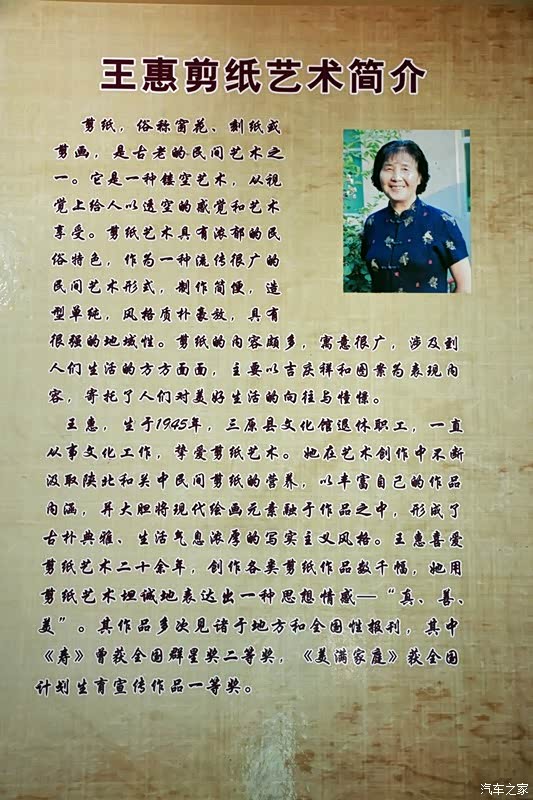 王惠剪纸艺术简介
剪纸，俗称窗花、刻纸或
剪画，是古老的民间艺术之
一。它是一种镂空艺术，从视
觉上给人以透空的感觉和艺术
享受。剪纸艺术具有浓郁的民
俗特色，作为一种流传很广的
民间艺术形式，制作简便，造
型单纯，风格质朴豪放，具有
很强的地域性。剪纸的内容颇多，寓意很广，涉及到
人们生活的方方面面，主要以吉庆祥和图案为表现内
容，寄托了人们对美好生活的向往与憧憬。
王惠，生于1945年，三原县文化馆退休职工，一直
从事文化工作，挚爱剪纸艺术。她在艺术创作中不断
汲取陕北和关中民间剪纸的营养，以丰富自己的作品
内涵，并大胆将现代绘画元素融于作品之中，形成了
古朴典雅、生活气息浓厚的写实主义风格。王惠喜爱
剪纸艺术二十余年，创作各类剪纸作品数千幅，她用
剪纸艺术坦诚地表达出一种思想情感—“真、善、
美”。其作品多次见诸于地方和全国性报刊，其中
《寿》曾获全国群星奖二等奖，《美满家庭》获全国
计划生育宣传作品一等奖。
汽车之家